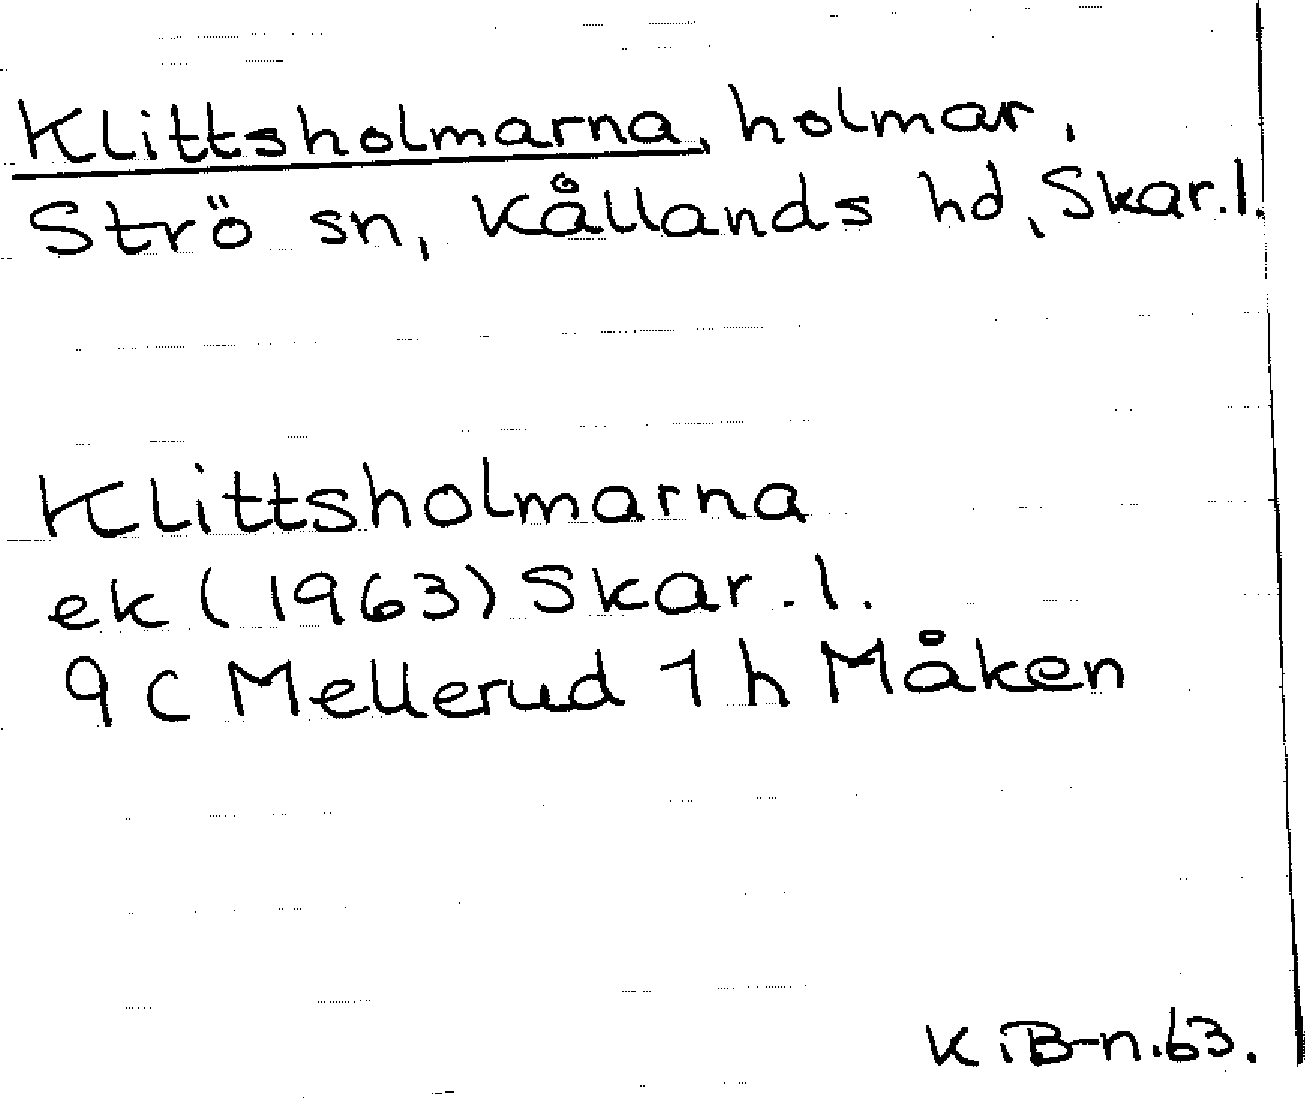 Klittsholmarna, holmar,
Strö sn, Kållands hd, Skar.l.
Klittsholmarna
ek (1963) Skar.l.
9C Mellerud 1h Måken
K iB-n.63.